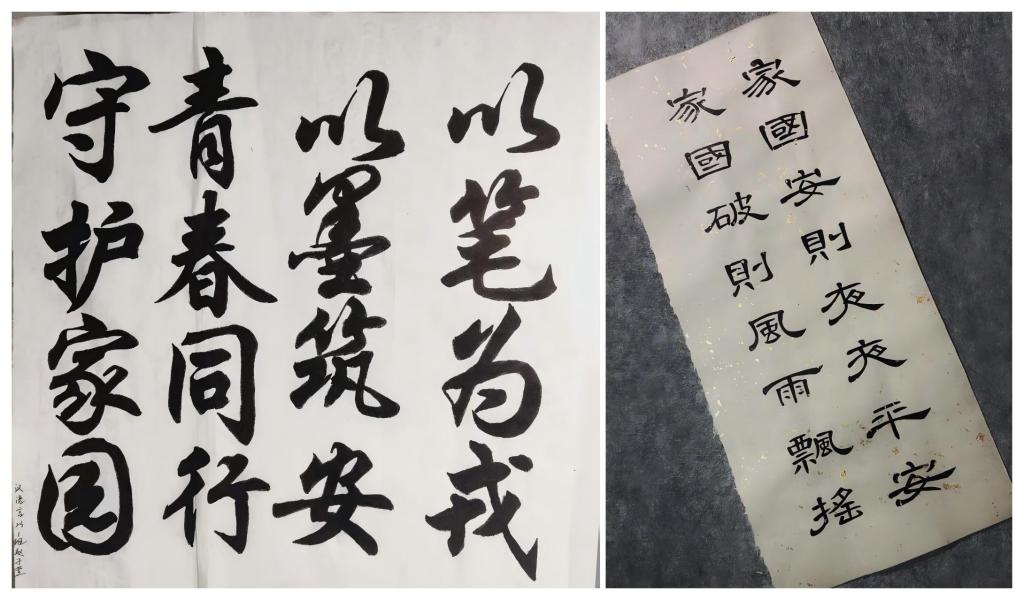 以笔为戎
以墨筑安
青春同行
守护家园
家國安則夜夜平安
家國破則風雨飄搖